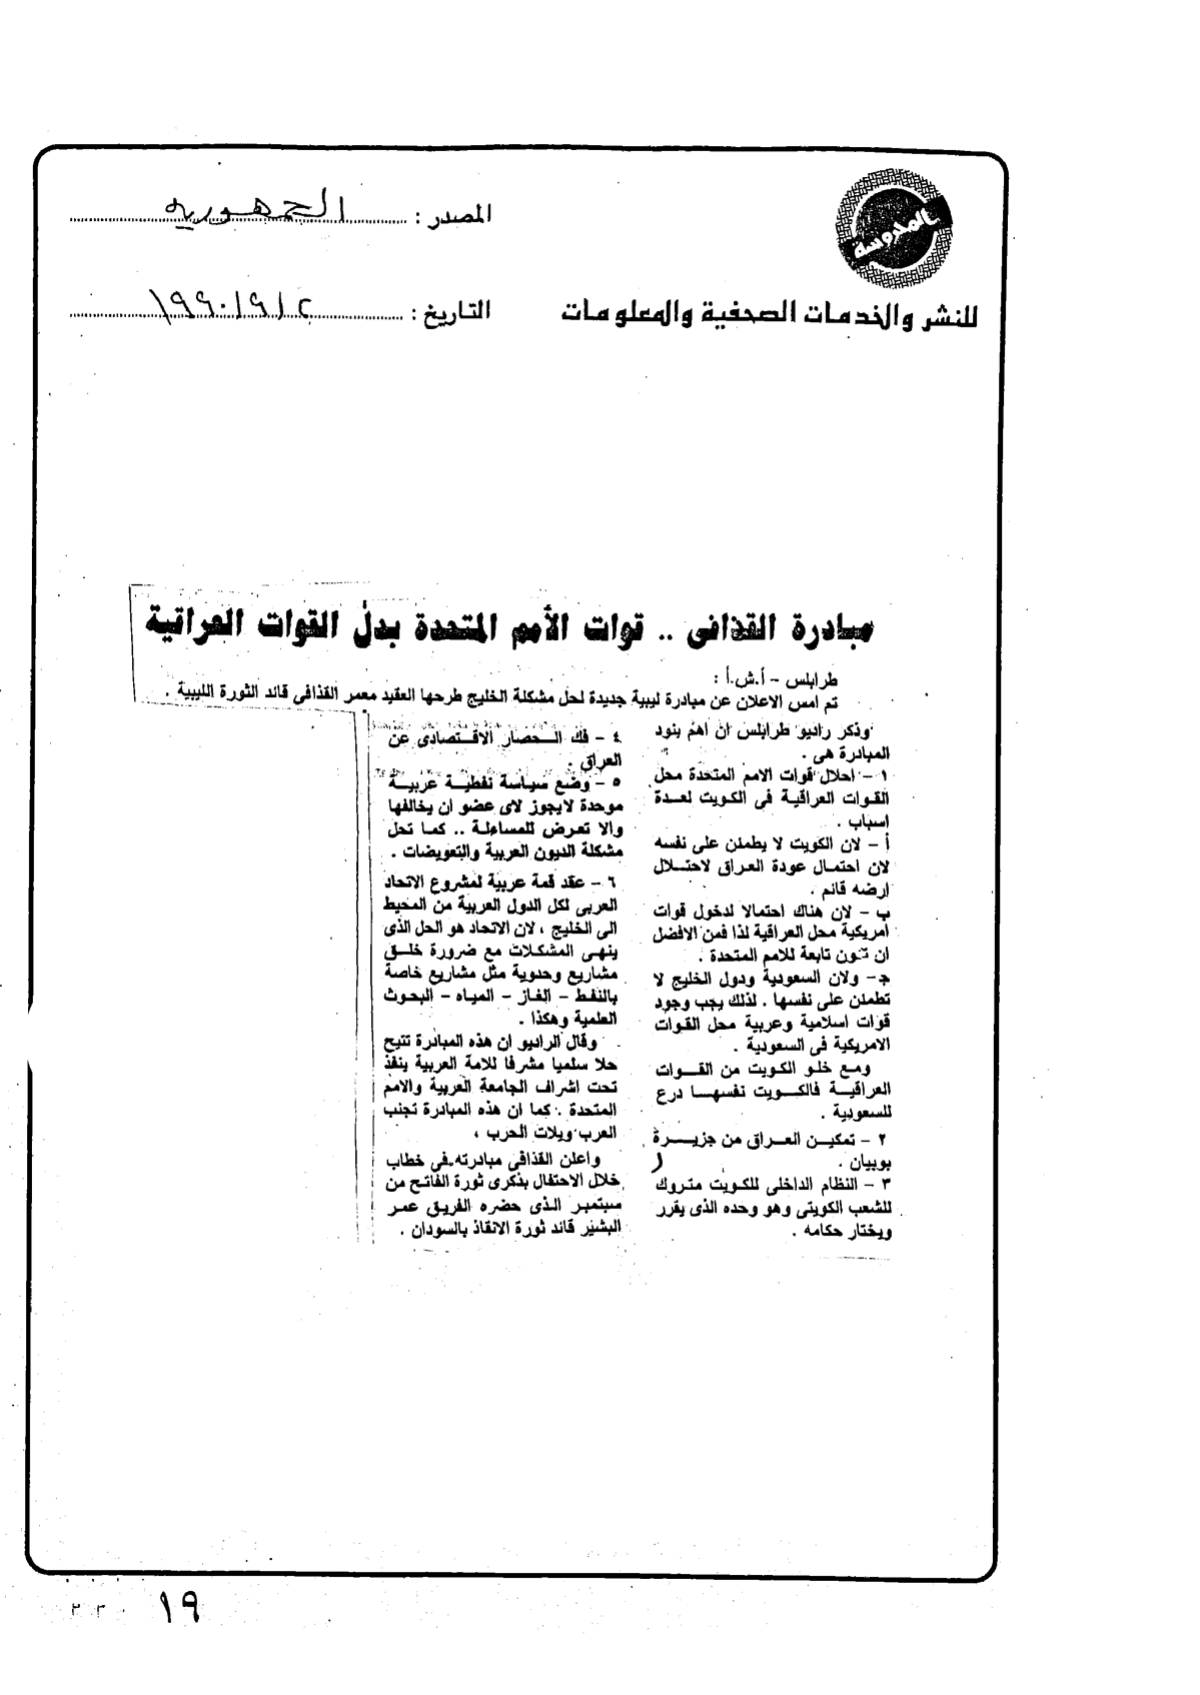 المحروسة
المصدر : الجمهوريه
للنشر والخدمات الصحفية والمعلومات
التاريخ : ٢ / ٩ / ١٩٩٠
مبادرة القذافى .. قوات الأمم المتحدة بدل القوات العراقية
طرابلس - أ.ش.أ :
تم امس الاعلان عن مبادرة ليبية جديدة لحل مشكلة الخليج طرحها العقيد معمر القذافى قائد الثورة الليبية .
وذكر راديو طرابلس ان اهم بنود
المبادرة هى .
١ - احلال قوات الامم المتحدة محل
القوات العراقية فى الكويت لعدة
اسباب .
أ - لان الكويت لا يطمئن على نفسه
لان احتمال عودة العراق لاحتلال
ارضه قائم .
ب - لان هناك احتمالا لدخول قوات
امريكية محل العراقية لذا فمن الافضل
ان تكون تابعة للامم المتحدة .
جـ - ولان السعودية ودول الخليج لا
تطمئن على نفسها . لذلك يجب وجود
قوات اسلامية وعربية محل القوات
الامريكية فى السعودية .
ومع خلو الكويت من القوات
العراقية فالكويت نفسها درع
للسعودية .
٢ - تمكين العراق من جزيرة
بوبيان .
٣ - النظام الداخلى للكويت متروك
للشعب الكويتى وهو وحده الذى يقرر
ويختار حكامه .
٤ - فك الحصار الاقتصادى عن
العراق .
٥ - وضع سياسة نفطية عربية
موحدة لايجوز لاى عضو ان يخالفها
والا تعرض للمساءلة .. كما تحل
مشكلة الديون العربية والتعويضات .
٦ - عقد قمة عربية لمشروع الاتحاد
العربى لكل الدول العربية من المحيط
الى الخليج ، لان الاتحاد هو الحل الذى
ينهى المشكلات مع ضرورة خلق
مشاريع وحدوية مثل مشاريع خاصة
بالنفط - الغاز - المياه - البحوث
العلمية وهكذا .
وقال الراديو ان هذه المبادرة تتيح
حلا سلميا مشرفا للامة العربية ينفذ
تحت اشراف الجامعة العربية والامم
المتحدة . كما ان هذه المبادرة تجنب
العرب ويلات الحرب ،
واعلن القذافى مبادرته فى خطاب
خلال الاحتفال بذكرى ثورة الفاتح من
سبتمبر الذى حضره الفريق عمر
البشير قائد ثورة الانقاذ بالسودان .
١٩